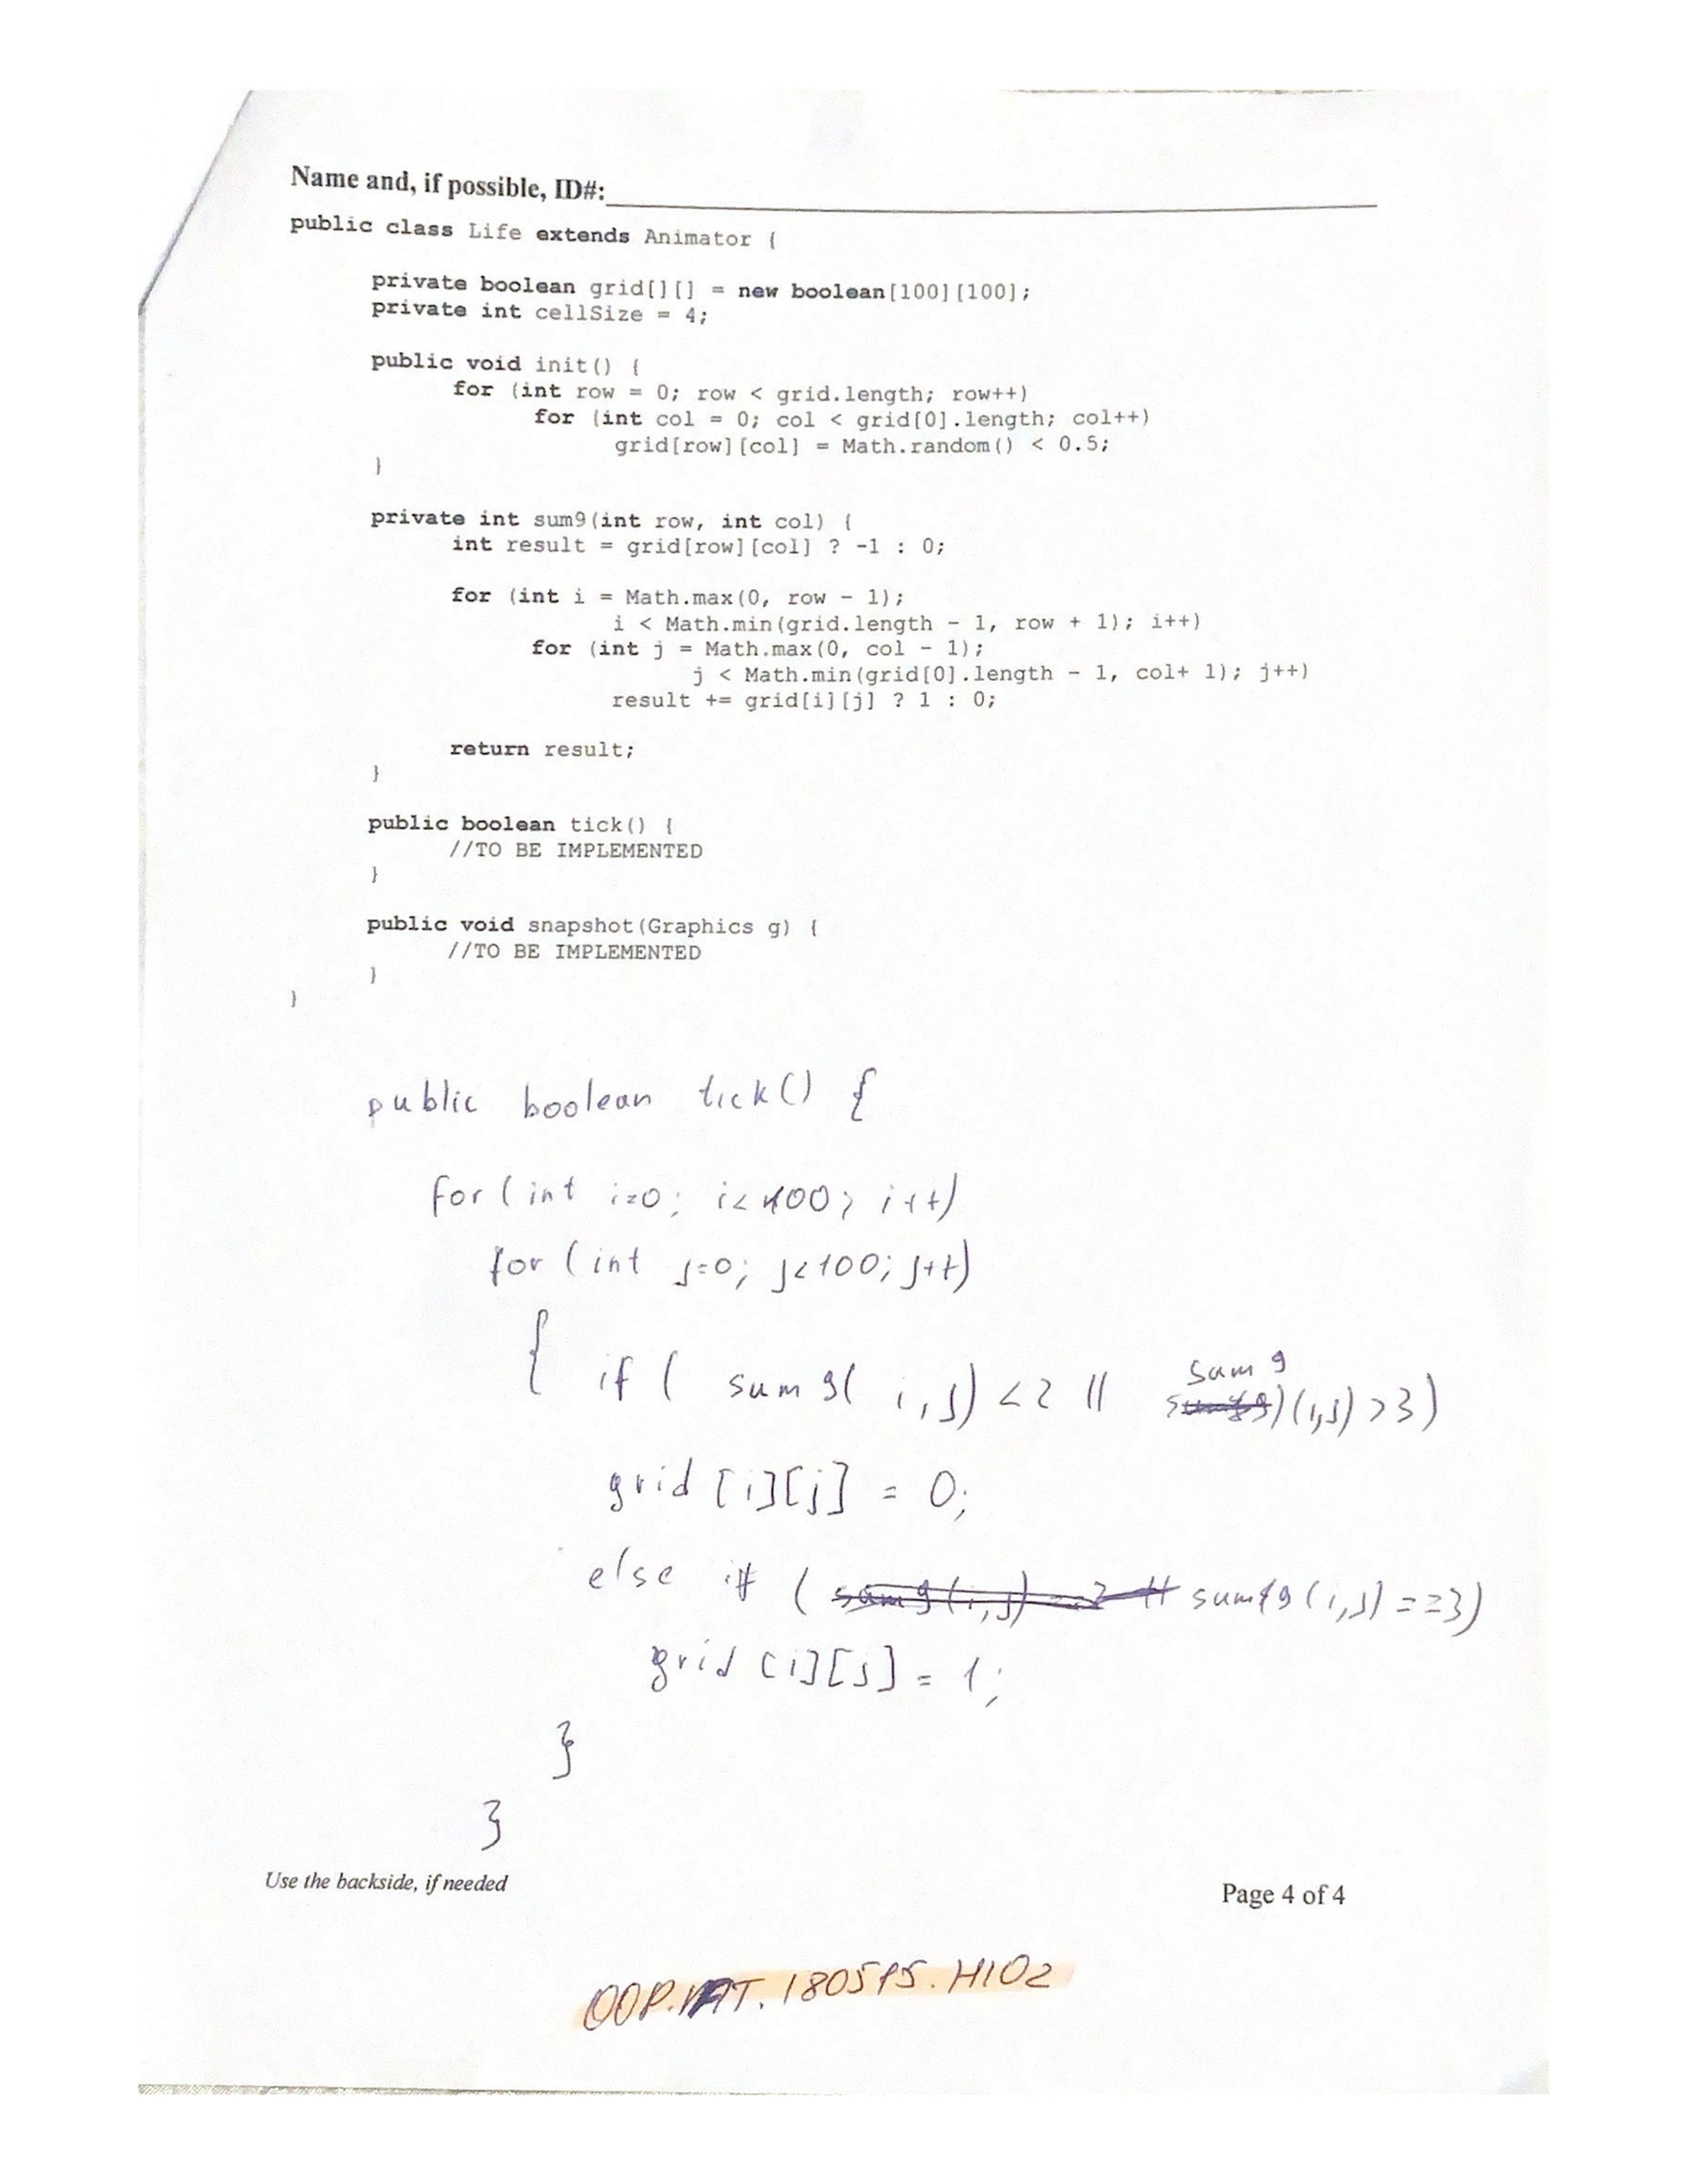 Name and, if possible, ID#:
public class Life extends Animator {
private boolean grid[][] = new boolean[100][100];
private int cellSize = 4;
public void init() {
for (int row = 0; row < grid.length; row++)
for (int col = 0; col < grid[0].length; col++)
grid[row][col] = Math.random() < 0.5;
}
private int sum9(int row, int col) {
int result = grid[row][col] ? -1 : 0;
for (int i = Math.max(0, row - 1);
i < Math.min(grid.length - 1, row + 1); i++)
for (int j = Math.max(0, col - 1);
j < Math.min(grid[0].length - 1, col+ 1); j++)
result += grid[i][j] ? 1 : 0;
return result;
}
public boolean tick() {
//TO BE IMPLEMENTED
}
public void snapshot(Graphics g) {
//TO BE IMPLEMENTED
}
}
public boolean tick() {
for (int i=0; i<100; i++)
for (int j=0; j<100; j++)
{ if ( sum9( i,j) <2 || sum9 (i,j) >3)
grid [i][j] = 0;
else if ( sum9 (i,j) ==3)
grid [i][j] = 1;
}
}
Use the backside, if needed
Page 4 of 4